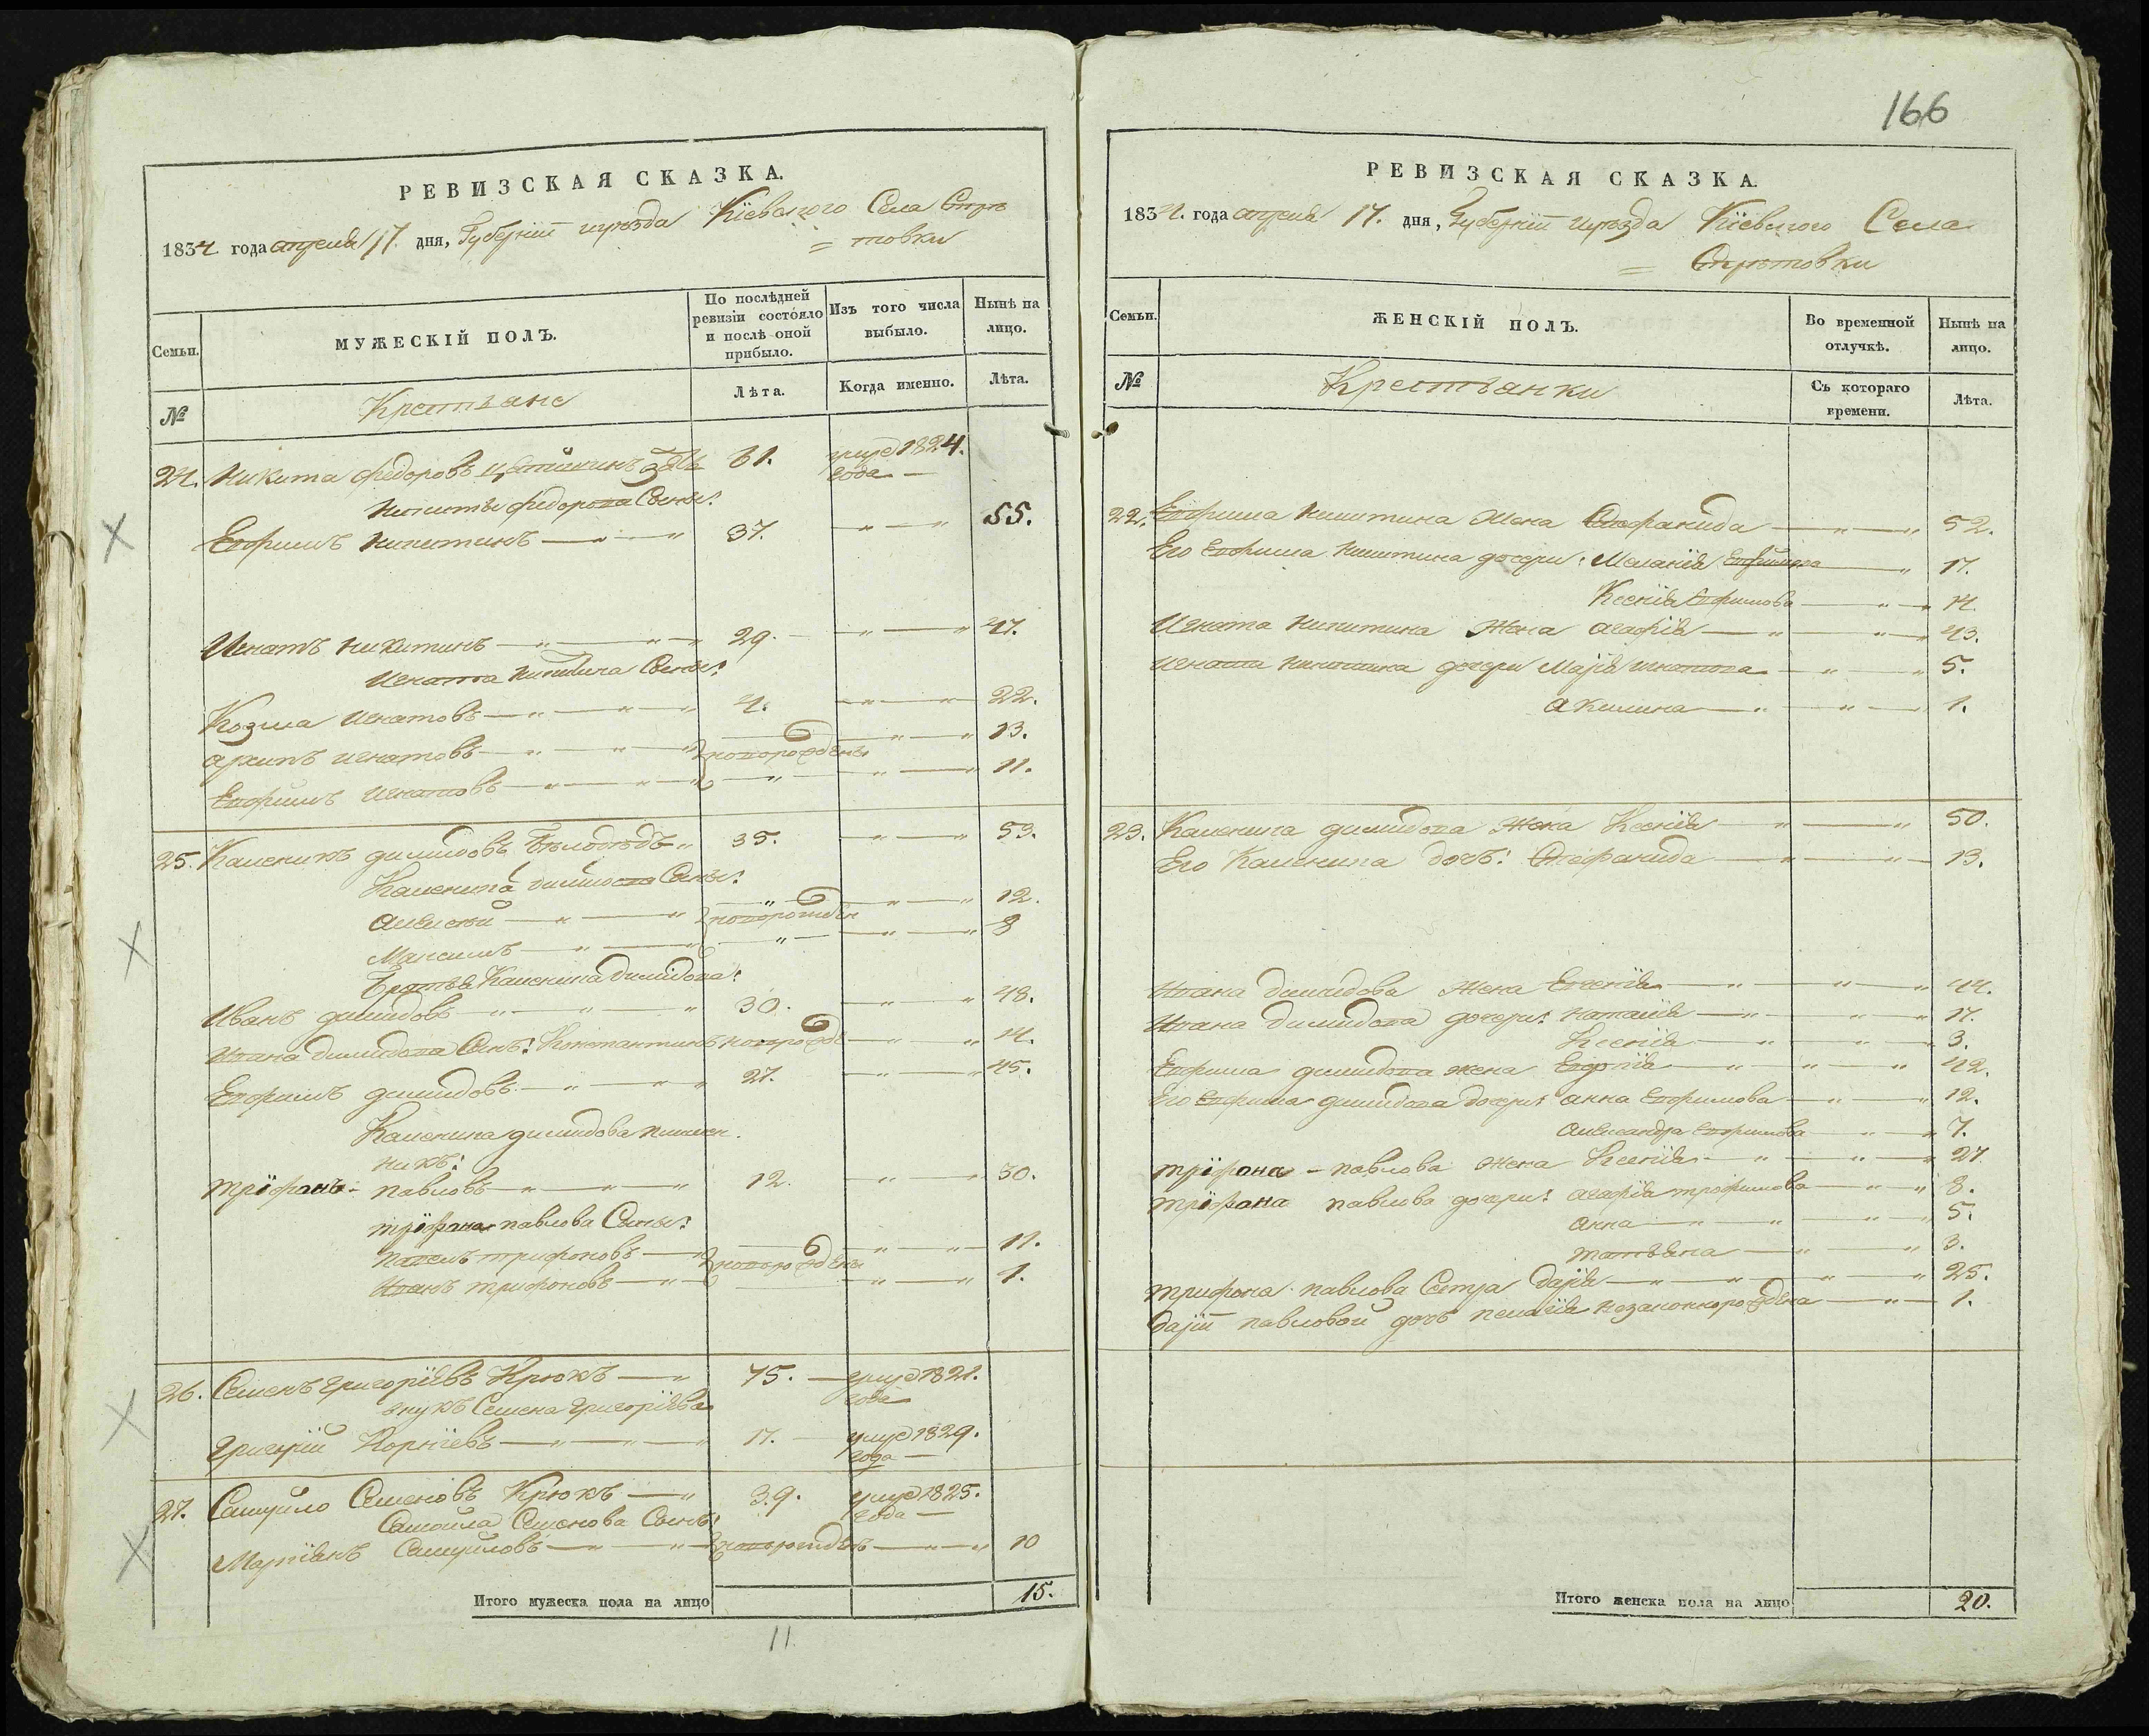 166
РЕВИЗСКАЯ СКАЗКА.
1834 года апреля 17. дня, Губернiи и уѣзда Кiевского Села Стре
= товки
Семьи. МУЖЕСКІЙ ПОЛЪ. По послѣдней ревизіи состояло и послѣ оной прибыло. Изъ того числа выбыло. Нынѣ на лицо.
№ Крестьяне Лѣта. Когда именно. Лѣта.
24. Никита Федоровъ 61. умре 1824. года
Никиты Федорова Сыны:
Ефримъ Никитинъ 37. 55.
Игнатъ Никитинъ 29. 47.
Игната Никитина Сыны:
Козма Игнатовъ 4. 22.
Архипъ Игнатовъ новорождены 13.
Ефримъ Игнатовъ 11.
25. Каленикъ Димидовъ Бѣлодѣдъ 35. 53.
Каленика Димидова Сыны:
Алексѣй новорожден 12.
Максимъ 8
Братья Каленика Димидова:
Иванъ Димидовъ 30. 48.
Ивана Димидова Сынъ: Константинъ новорожде 14.
Ефримъ Димидовъ 27. 45.
Каленика Димидова племен.
никъ:
Трiфонъ Павловъ 12. 30.
Трiфона Павлова Сыны:
Павелъ Трифоновъ новорождены 11.
Иванъ Трифоновъ 1.
26. Семенъ Григорiевъ Крюкъ 75. умре 1821. года
внукъ Семена Григорiева
Григорiй Корнiевъ 17. умре 1829. года
27. Самуйло Семеновъ Крюкъ 39. умре 1825. года
Самойла Семенова Сынъ:
Мартiянъ Самуйловъ новорожденъ 10
Итого мужеска пола на лицо 15.
11
РЕВИЗСКАЯ СКАЗКА.
1834. года апреля 17. дня, Губернiи и уѣзда Кiевского Села
= Стретовки
Семьи. ЖЕНСКІЙ ПОЛЪ. Во временной отлучкѣ. Нынѣ на лицо.
№ Крестьянки Съ котораго времени. Лѣта.
Ефрима Никитина Жена Стефанида 52.
Его Ефрима Никитина дочери: Меланiя Ефримова 17.
Ксенiя Ефримова 14
Игната Никитина Жена Агафiя 43.
Игната Никитина дочери Марiя Игнатова 5.
Акилина 1.
Каленика Димидова Жена Ксенiя 50.
Его Каленика дочь: Стефанида 13.
Ивана Димидова Жена Евгенiя 44.
Ивана Димидова дочери: Наталiя 17.
Ксенiя 3.
Ефрима Димидова жена Евдокiя 42.
Его Ефрима Димидова дочери: Анна Ефримова 12.
Александра Ефримова 7.
Трiфона Павлова Жена Ксенiя 27
Трiфона Павлова дочери: Агафiя Трофимова 8.
Анна 5.
Татьяна 3.
Трифона Павлова Сестра Дарiя 25.
Дарiи Павловой дочь Пелагiя незаконнорождена 1.
Итого женска пола на лицо 20.